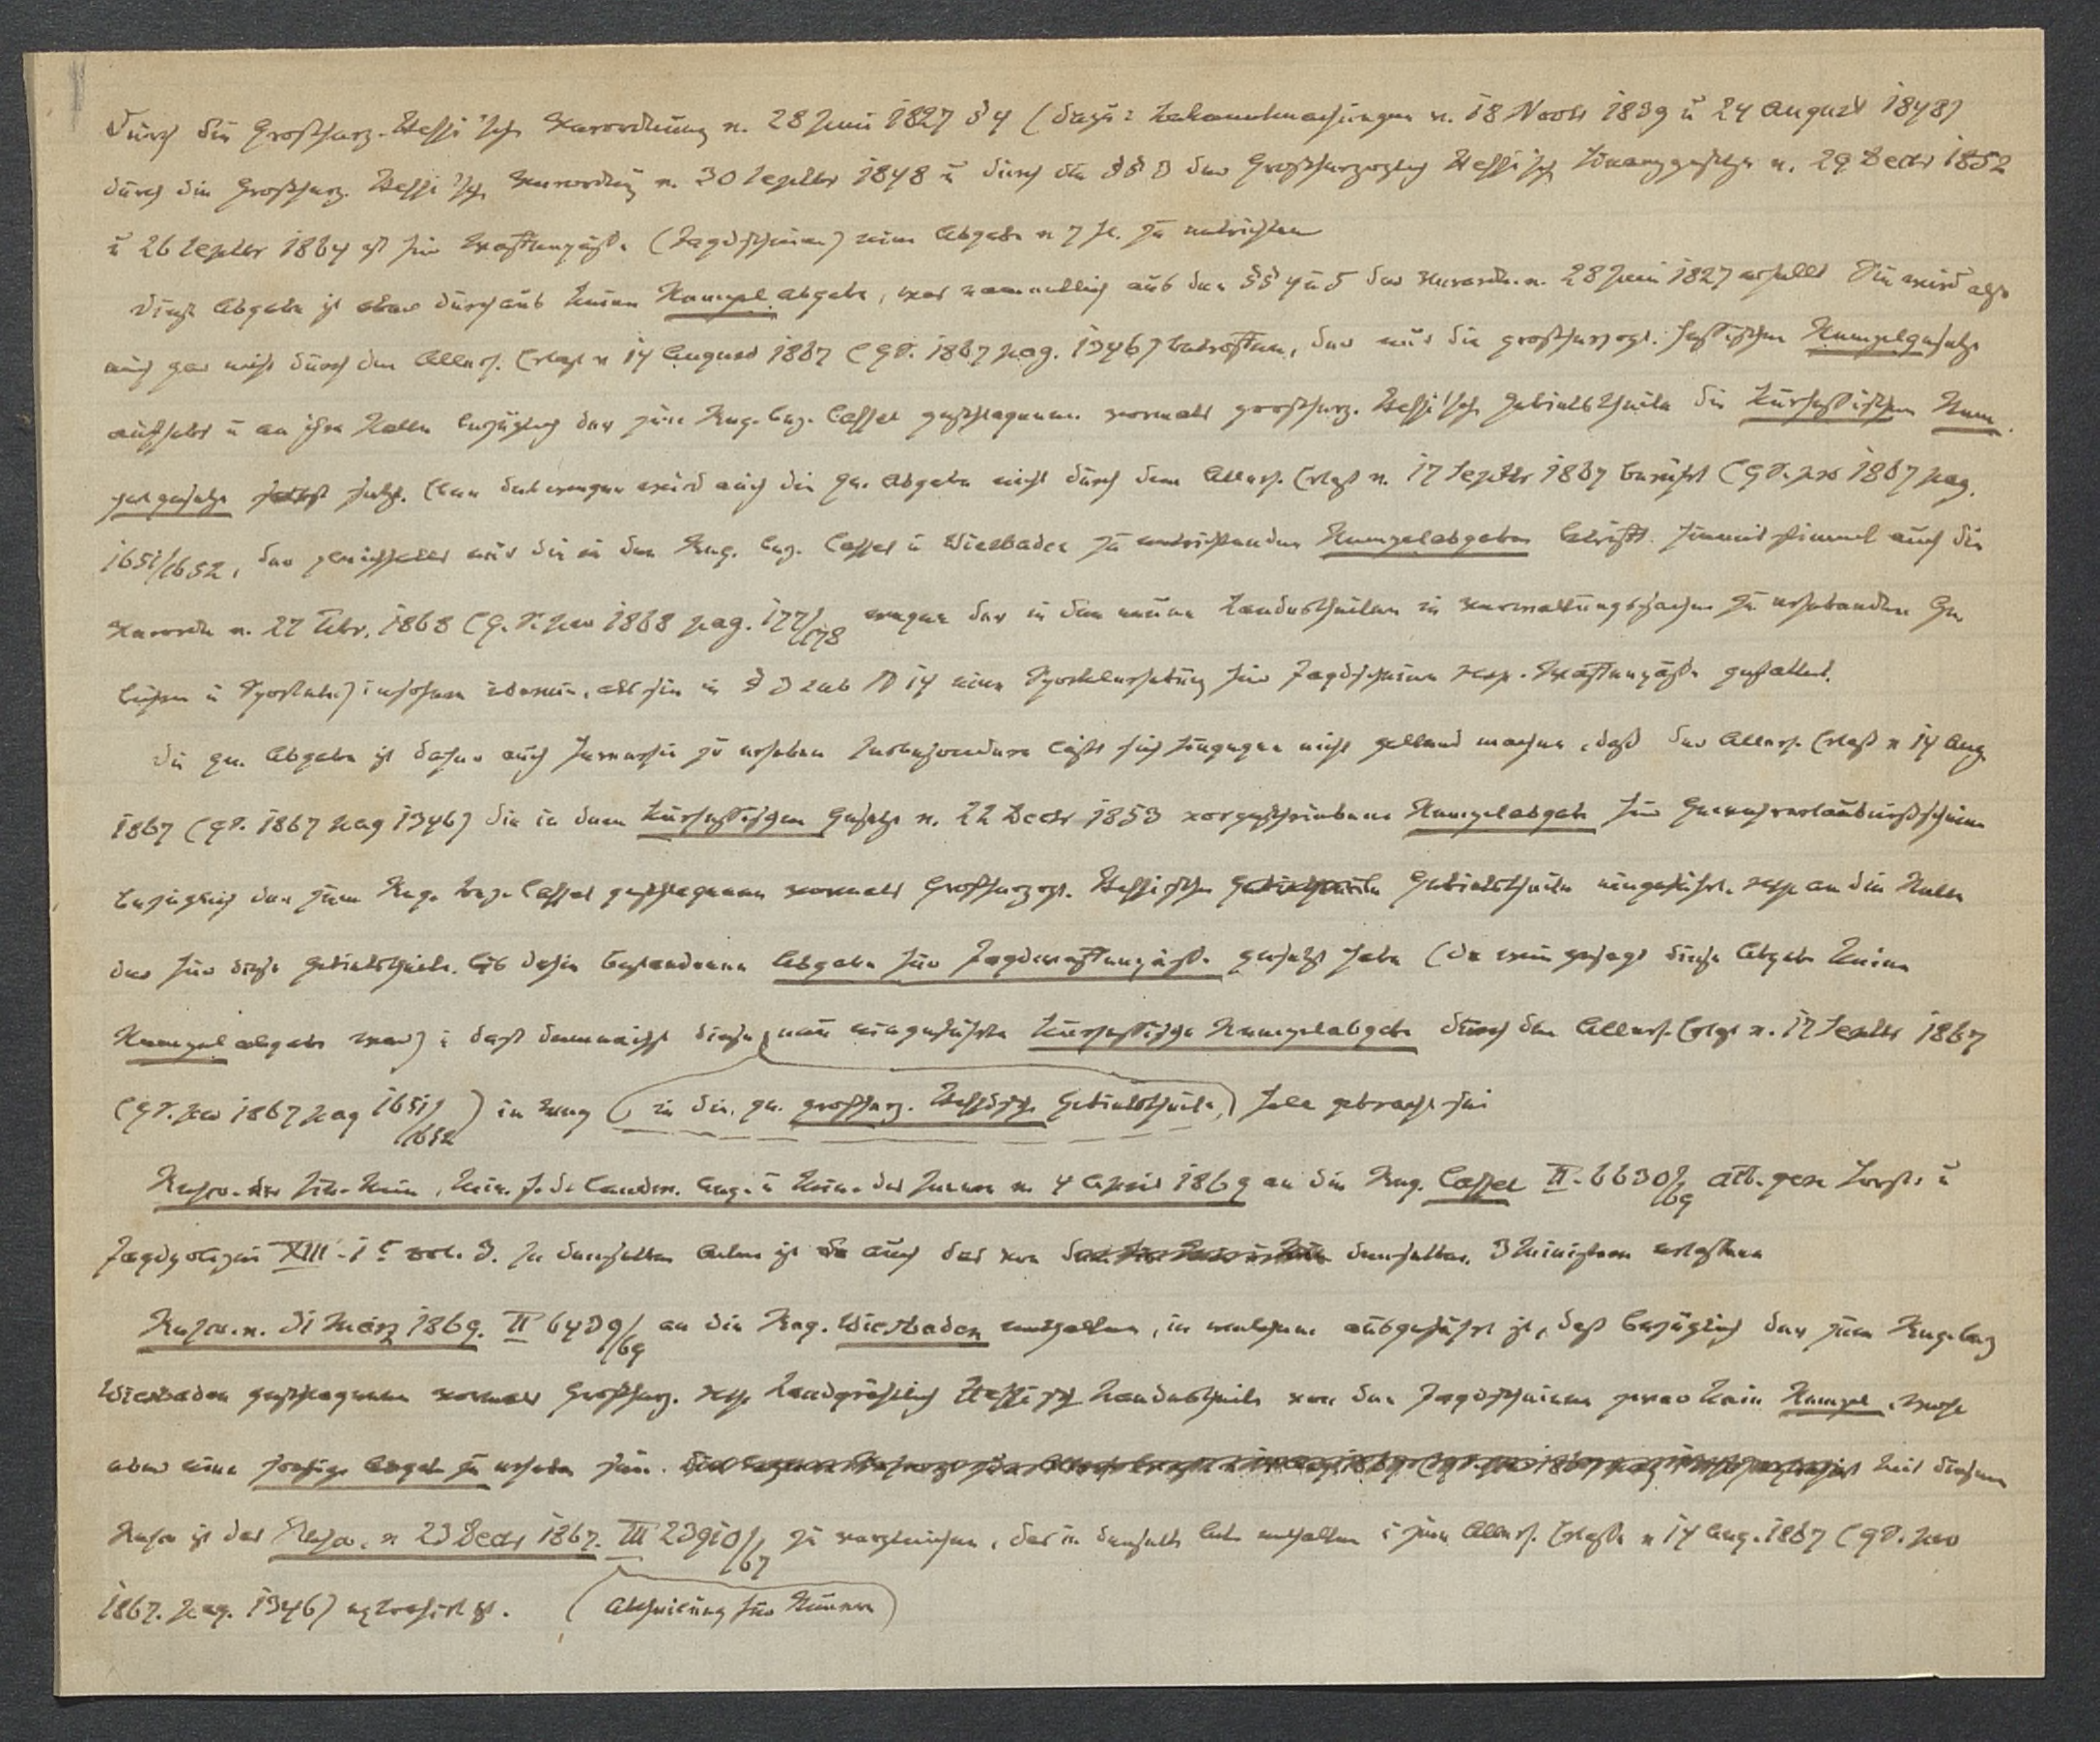 Durch die Großherz. Hessi'sche Verordnung v. 28 Juni 1827 § 4 (dazu: Bekanntmachungen v. 18 Novbr 1839 u 24 August 1848)
durch die Großherz. Hessi'sche Verordng v. 30 Septbr 1848 u durch die §§ 3 der Großherzoglich Hessisch Finanzgesetze v. 29 Decbr 1852
u 26 Septbr 1864 ist für Waffenpässe (Jagdscheine) eine Abgabe v 7 fl. zu entrichten
Diese Abgabe ist aber durchaus keine Stempelabgabe, was namentlich aus den §§ 4 u 5 der Verordn. v. 28 Juni 1827 erhellt Sie wird also
auch gar nicht durch den Allerh. Erlaß v 14 August 1867 (G.S. 1867 pag. 1346) betroffen, der nur die großherzogl. hessischen Stempelgesetze
aufhebt u an ihre Stelle bezüglich der zum Reg. Bez. Cassel geschlagenen vormals großherz. Hessi'sche Gebietstheile die kurhessischen Stem
pelgesetze setzt. Eben deswegen wird auch die gen. Abgabe nicht durch den Allerh. Erlaß v. 17 Septbr 1867 berührt (G.S. pro 1867 pag.
1651/1652, der gleichfalls nur die in den Reg. Bez. Cassel u Wiesbaden zu entrichtenden Stempelabgaben betrifft. Hiermit stimmt auch die
Verordn v. 27 Febr. 1868 (G.S. pro 1868 pag. 177/178 wegen der in den neuen Landestheilen in Verwaltungssachen zu erhebenden Ge
bühren u Sporteln) insofern überein, als sie in § 3 sub No 14 eine Sportelerhebung für Jagdscheine resp. Waffenpässe gestattet.
Die gen. Abgabe ist daher auch fernerhin zu erheben Insbesondere läßt sich hingegen nicht geltend machen, daß der Allerh. Erlaß v 14 Aug.
1867 (G.S. 1867 pag 1346) die in dem kurhessischen Gesetze v. 22 Decbr 1853 vorgeschriebene Stempelabgabe für Gewehrerlaubnißscheine
bezüglich der zum Reg. Bez. Cassel geschlagenen vormals Großherzogl. Hessischen Gebietstheile eingeführt resp an die Stelle
der für diese Gebietstheile bis dahin bestandenen Abgabe für Jagdwaffenpässe gesetzt habe (da wie gesagt diese Abgabe keine
Stempelabgabe war) u daß demnächst diese neu eingeführte kurhessische Stempelabgabe durch den Allerh. Erlaß v. 17 Septbr 1867
(G.S. pro 1867 pag 1651/1652) in Weg (in die gen. großherz. Hessische Gebietstheile) falle gebracht sei
Rescr. der Fin. Min, Min. f. d. landw. Ang. u Min. des Innern v. 4 April 1869 an die Reg. Cassel II. 6630/69 att. gen Forst- u
Jagdpolizei XIII. 1 c vol. 3. In denselben Acten ist auch das von denselben 3 Ministern erlassene
Rescr. v. 31 März 1869. II 6439/69 an die Reg. Wiesbaden enthalten, in welchem ausgeführt ist, daß bezüglich der zum Reg. Bez
Wiesbaden geschlagenen vormals Großherz. resp Landgräflich Hessisch Landestheile von den Jagdscheinen zwar kein Stempel, wohl
aber eine sonstige Abgabe zu erheben sei. Mit diesem
Rescr ist das Rescr. v 23 Decbr 1867. III 23910/67 zu vergleichen, das in denselb. Act. enthalten u zum Allerh. Erlasse v 14 Aug. 1867 (G.S. pro
1867. pag. 1346) extrahirt ist. (Abtheilung für Steuern)